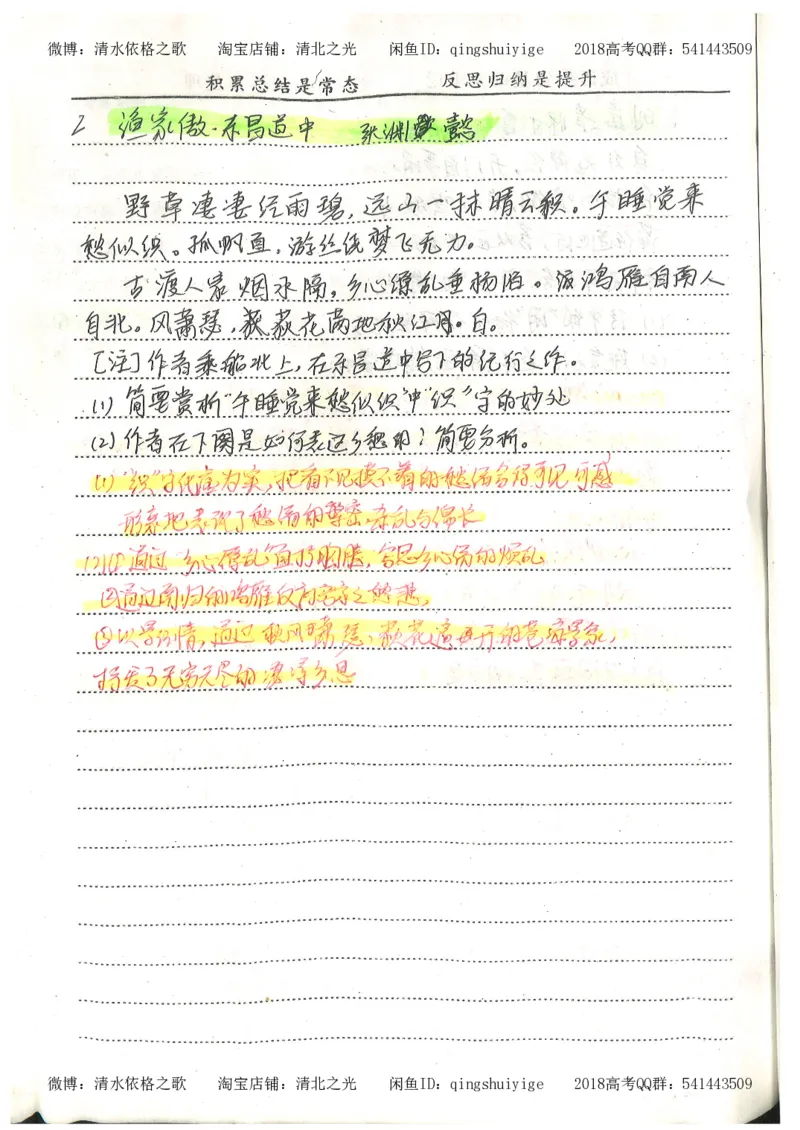 微博：清水依格之歌 淘宝店铺：清北之光 闲鱼ID：qingshuiyige 2018高考QQ群：541443509
积累总结是常态 反思归纳是提升
2 渔家傲·东昌道中 张渊懿
野草凄凄经雨碧，远山一抹晴云积。午睡觉来
愁似织。孤帆直，游丝绕梦飞无力。
古渡人家烟水隔，乡心缭乱垂杨陌。鸿雁自南人
自北。风萧瑟，荻花满地秋江白。
[注]作者乘船北上，在东昌道中写下的纪行之作。
(1) 简要赏析"午睡觉来愁似织"中"织"字的妙处
(2) 作者在下阕是如何表达乡愁的？简要分析。
(1)"织"字化虚为实，把看不见摸不着的愁绪写得可见可感
形象地表现了愁绪的繁密、杂乱与绵长
(2)①通过"乡心缭乱"直抒胸臆，写思乡心绪的烦乱
②通过南归的鸿雁反衬客子之愁悲，
③以景衬情，通过秋风萧瑟，荻花遍开的苍凉景象，
抒发了无穷无尽的凄凉乡思
微博：清水依格之歌 淘宝店铺：清北之光 闲鱼ID：qingshuiyige 2018高考QQ群：541443509